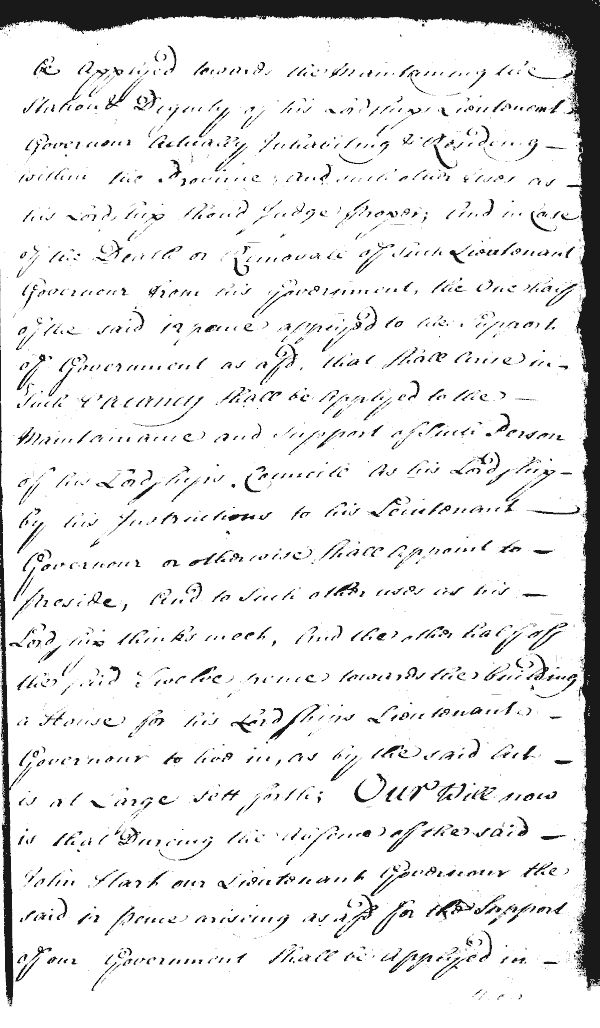 be Applyed towards the Maintaining the
Station & Dignity of his Lordships Lieutenant
Governour Actually Inhabiting & Residing
within the Province, and such other uses as
his Lordship should Judge proper; And in Case
of the Death or Removall of such Lieutenant
Governour from his Government, the One half
of the said 12 pence applyed to the Support
of Government as afd, that shall Arise in
Such Vacancy shall be Applyed to the
Maintainance and Support of such Person
of his Lordships Councill As his Lordship
by his Instructions to his Leiutenant
Governour or otherwise shall Appoint to
Preside, And to Such other uses as his
Lordship thinks meet, And the other half off
the said Twelve pence towards the building
a House for his Lordships Lieutenant
Governour to live in, as by the said Act
is at Large Sett forth; Our Will now
is that During the Absence of the said
John Hart our Lieutenant Governour the
said 12 pence arising as afd for the Support
of our Government Shall be Applyed in